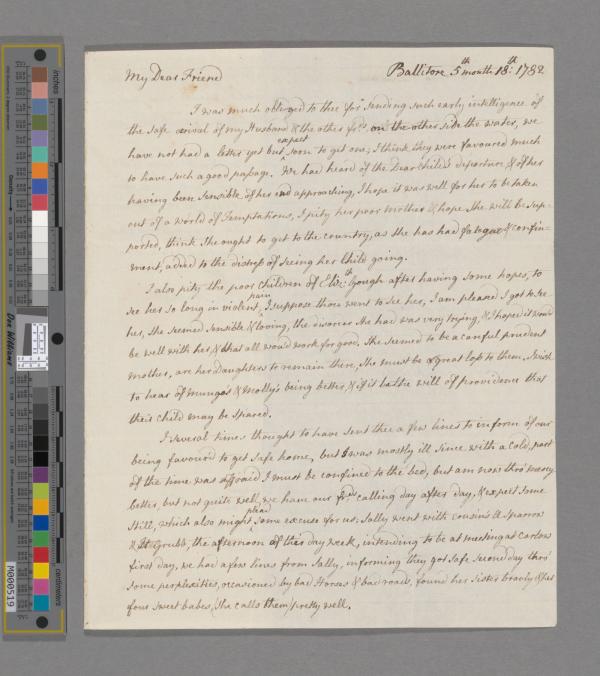 My Dear Friend
Ballitore 5th month 18th: 1782
I was much obliged to thee for sending such early intelligence of
the safe arival of my Husband & the other frds. on the other side the water, we
have not had a letter yet but expect soon to get one, I think they were favoured much
to have such a good passage. We had heard of the Dear child's departure, & of her
having been sensible of her end approaching, I hope it was well for her to be taken
out of a world of Temptations, I pity her poor Mother & hope she will be sup-
ported, think she ought to get to the country, as she has had fatogue & confin-
ment, added to the distress of seeing her Child going.
I also pity the poor children of Eliz:th Gough after having some hopes, to
see her so long in violent pain, I suppose thou went to see her, I am pleased I got to see
her, she seemed sensible & loving, the divorces she had was very trying, & I hope it would
be well with her, & that all would work for good. She seemed to be a careful prudent
mother, are her daughters to remain there, she must be a great loss to them, I wish
to hear of Mungo's & Molly's being better, & if it be the will of providence that
their child may be spared.
I several times thought to have sent thee a few lines to inform of our
being favoured to get safe home, but I was mostly ill since with a cold, part
of the time was affraid I must be confined to the bed, but am now thro' mercy
better, but not quite well, we have our frds calling day after day, & expect some
still, which also might plead some excuse for us: Sally went with cousins A Sparrow
& Grubb, the afternoon of this day week, intending to be at meeting at Carlow
first day, we had a few lines from Sally, informing they got safe second day thro'
some perplexities, occasioned by bad Horses & bad roads, found her Sister bravely & her
four sweet babes, (she calls them) pretty well.
inches
centimetres
Don Williams
M000519